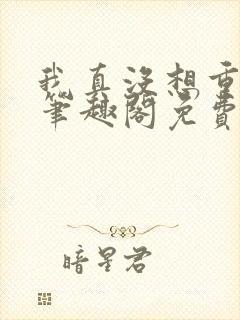 我真没想重
笔趣阁免费
暗星君